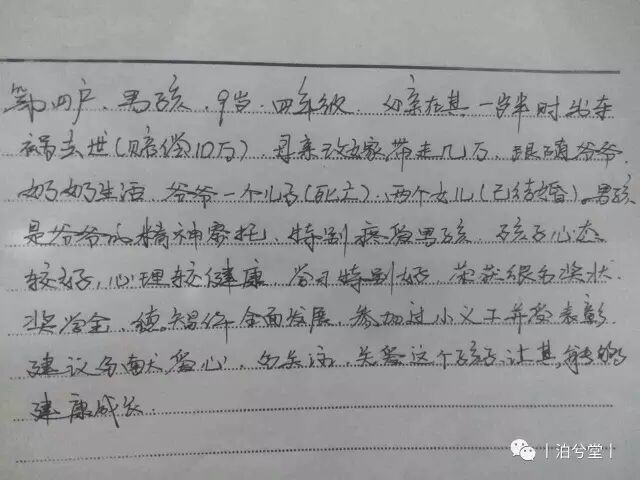 第四户、男孩、9岁、四年级、父亲在其一岁半时出车
祸去世(赔偿10万)、母亲改嫁带走几万、跟随爷爷、
奶奶生活、爷爷一个儿子(死亡)、两个女儿(已结婚)。男孩
是爷爷的精神寄托、特别疼爱男孩、孩子心态
较好、心理较健康、学习特别好、荣获很多奖状、
奖学金、德智体全面发展、参加过小义工并受表彰
建议多献爱心、多关注、关爱这个孩子、让其能够
健康成长.
丨泊兮堂丨